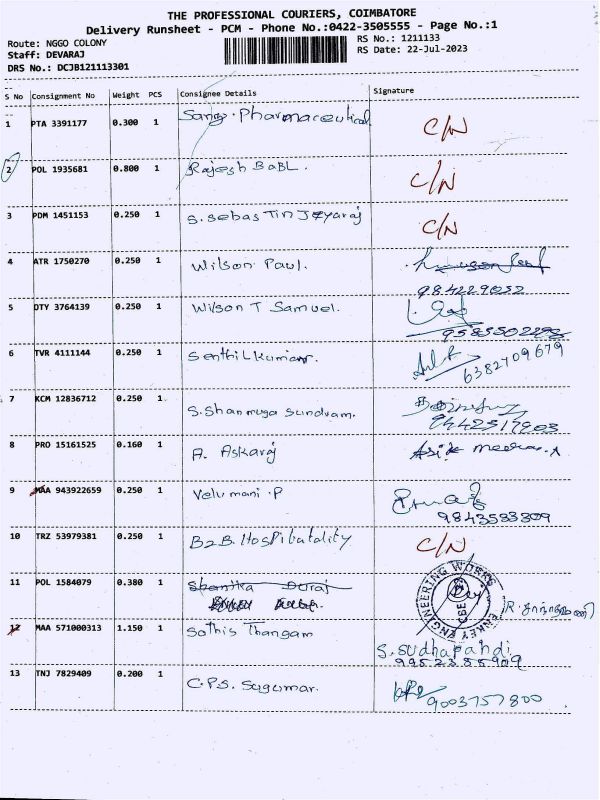 THE PROFESSIONAL COURIERS, COIMBATORE
Delivery Runsheet - PCM - Phone No.:0422-3505555 - Page No.:1
Route: NGGO COLONY
RS No.: 1211133
Staff: DEVARAJ
RS Date: 22-Jul-2023
DRS No.: DCJB121113301
S No Consignment No Weight PCS Consignee Details Signature
1 PTA 3391177 0.300 1 Sango. Pharmaceutical C/N
2 POL 1935681 0.800 1 Rajesh BaBL. C/N
3 PDM 1451153 0.250 1 S. Sebas Tin Jeyaraj C/N
4 ATR 1750270 0.250 1 Wilson Paul.
984229032
5 DTY 3764139 0.250 1 Wilson T Samuel.
6 TVR 4111144 0.250 1 Senthil kumar. 6382709679
7 KCM 12836712 0.250 1 S. Shanmuga Sundram.
9442517903
8 PRO 15161525 0.160 1 A. Askaraj
9 MAA 943922659 0.250 1 Velumani .P
9843583309
10 TRZ 53979381 0.250 1 B2B. Hospitatality C/N
11 POL 1584079 0.380 1 Shantha Duraj
ENGINEERING WORKS
12 MAA 571000313 1.150 1 Sathis Thangam
S. Sudhapandi
9952385909
13 TNJ 7829409 0.200 1 C.P.S. Sugumar. 9003757800